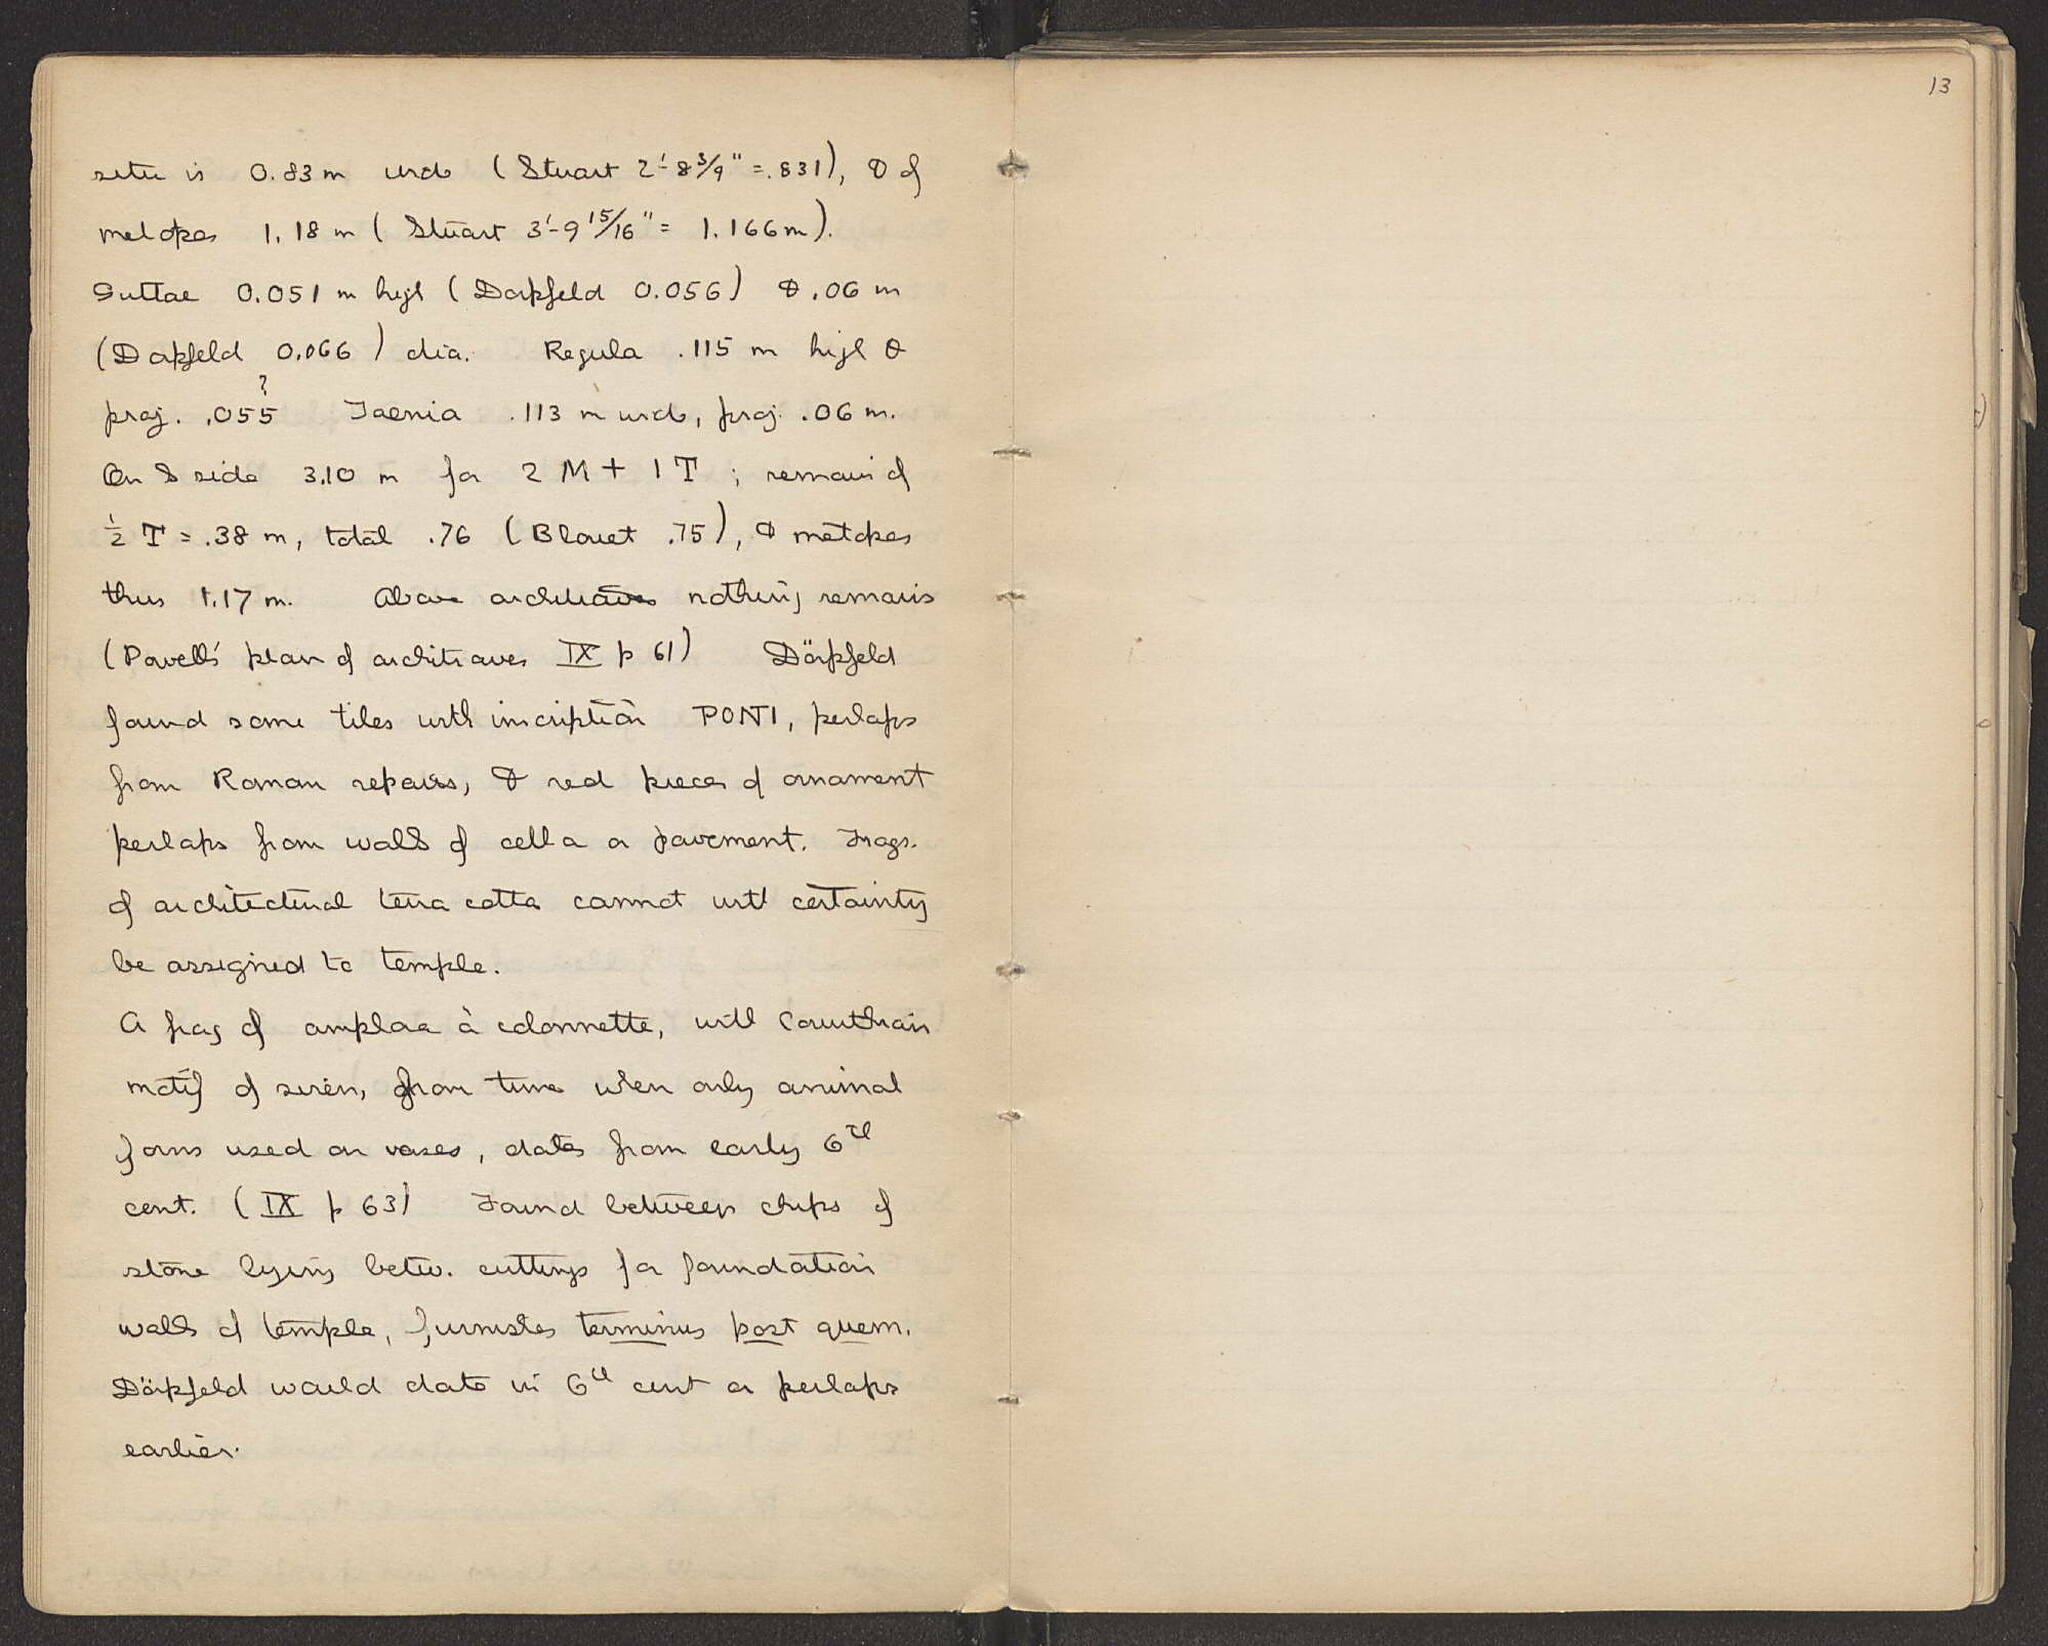 13
situ is 0.83 m wide (Stuart 2'-8 3/4" = .831), & of
metopes 1.18 m (Stuart 3'-9 15/16" = 1.166 m).
Guttae 0.051 m high (Dörpfeld 0.056) & .06 m
(Dörpfeld 0.066) dia. Regula .115 m high &
proj. .055? Taenia .113 m wide, proj. .06 m.
On S side 3.10 m for 2 M + 1 T; remain of
½ T = .38 m, total .76 (Blouet .75), & metopes
thus 1.17 m. Above architraves nothing remains
(Powell's plan of architraves IX p 61) Dörpfeld
found some tiles with inscription PONTI, perhaps
from Roman repairs, & red pieces of ornament
perhaps from walls of cella or pavement. Frags.
of architectural terra cotta cannot with certainty
be assigned to temple.
A frag of amphora à colonnette, with Corinthian
motif of siren, from time when only animal
forms used on vases, dates from early 6th
cent. (IX p 63) Found between chips of
stone lying betw. cuttings for foundation
walls of temple, furnishes terminus post quem.
Dörpfeld would date in 6th cent or perhaps
earlier.